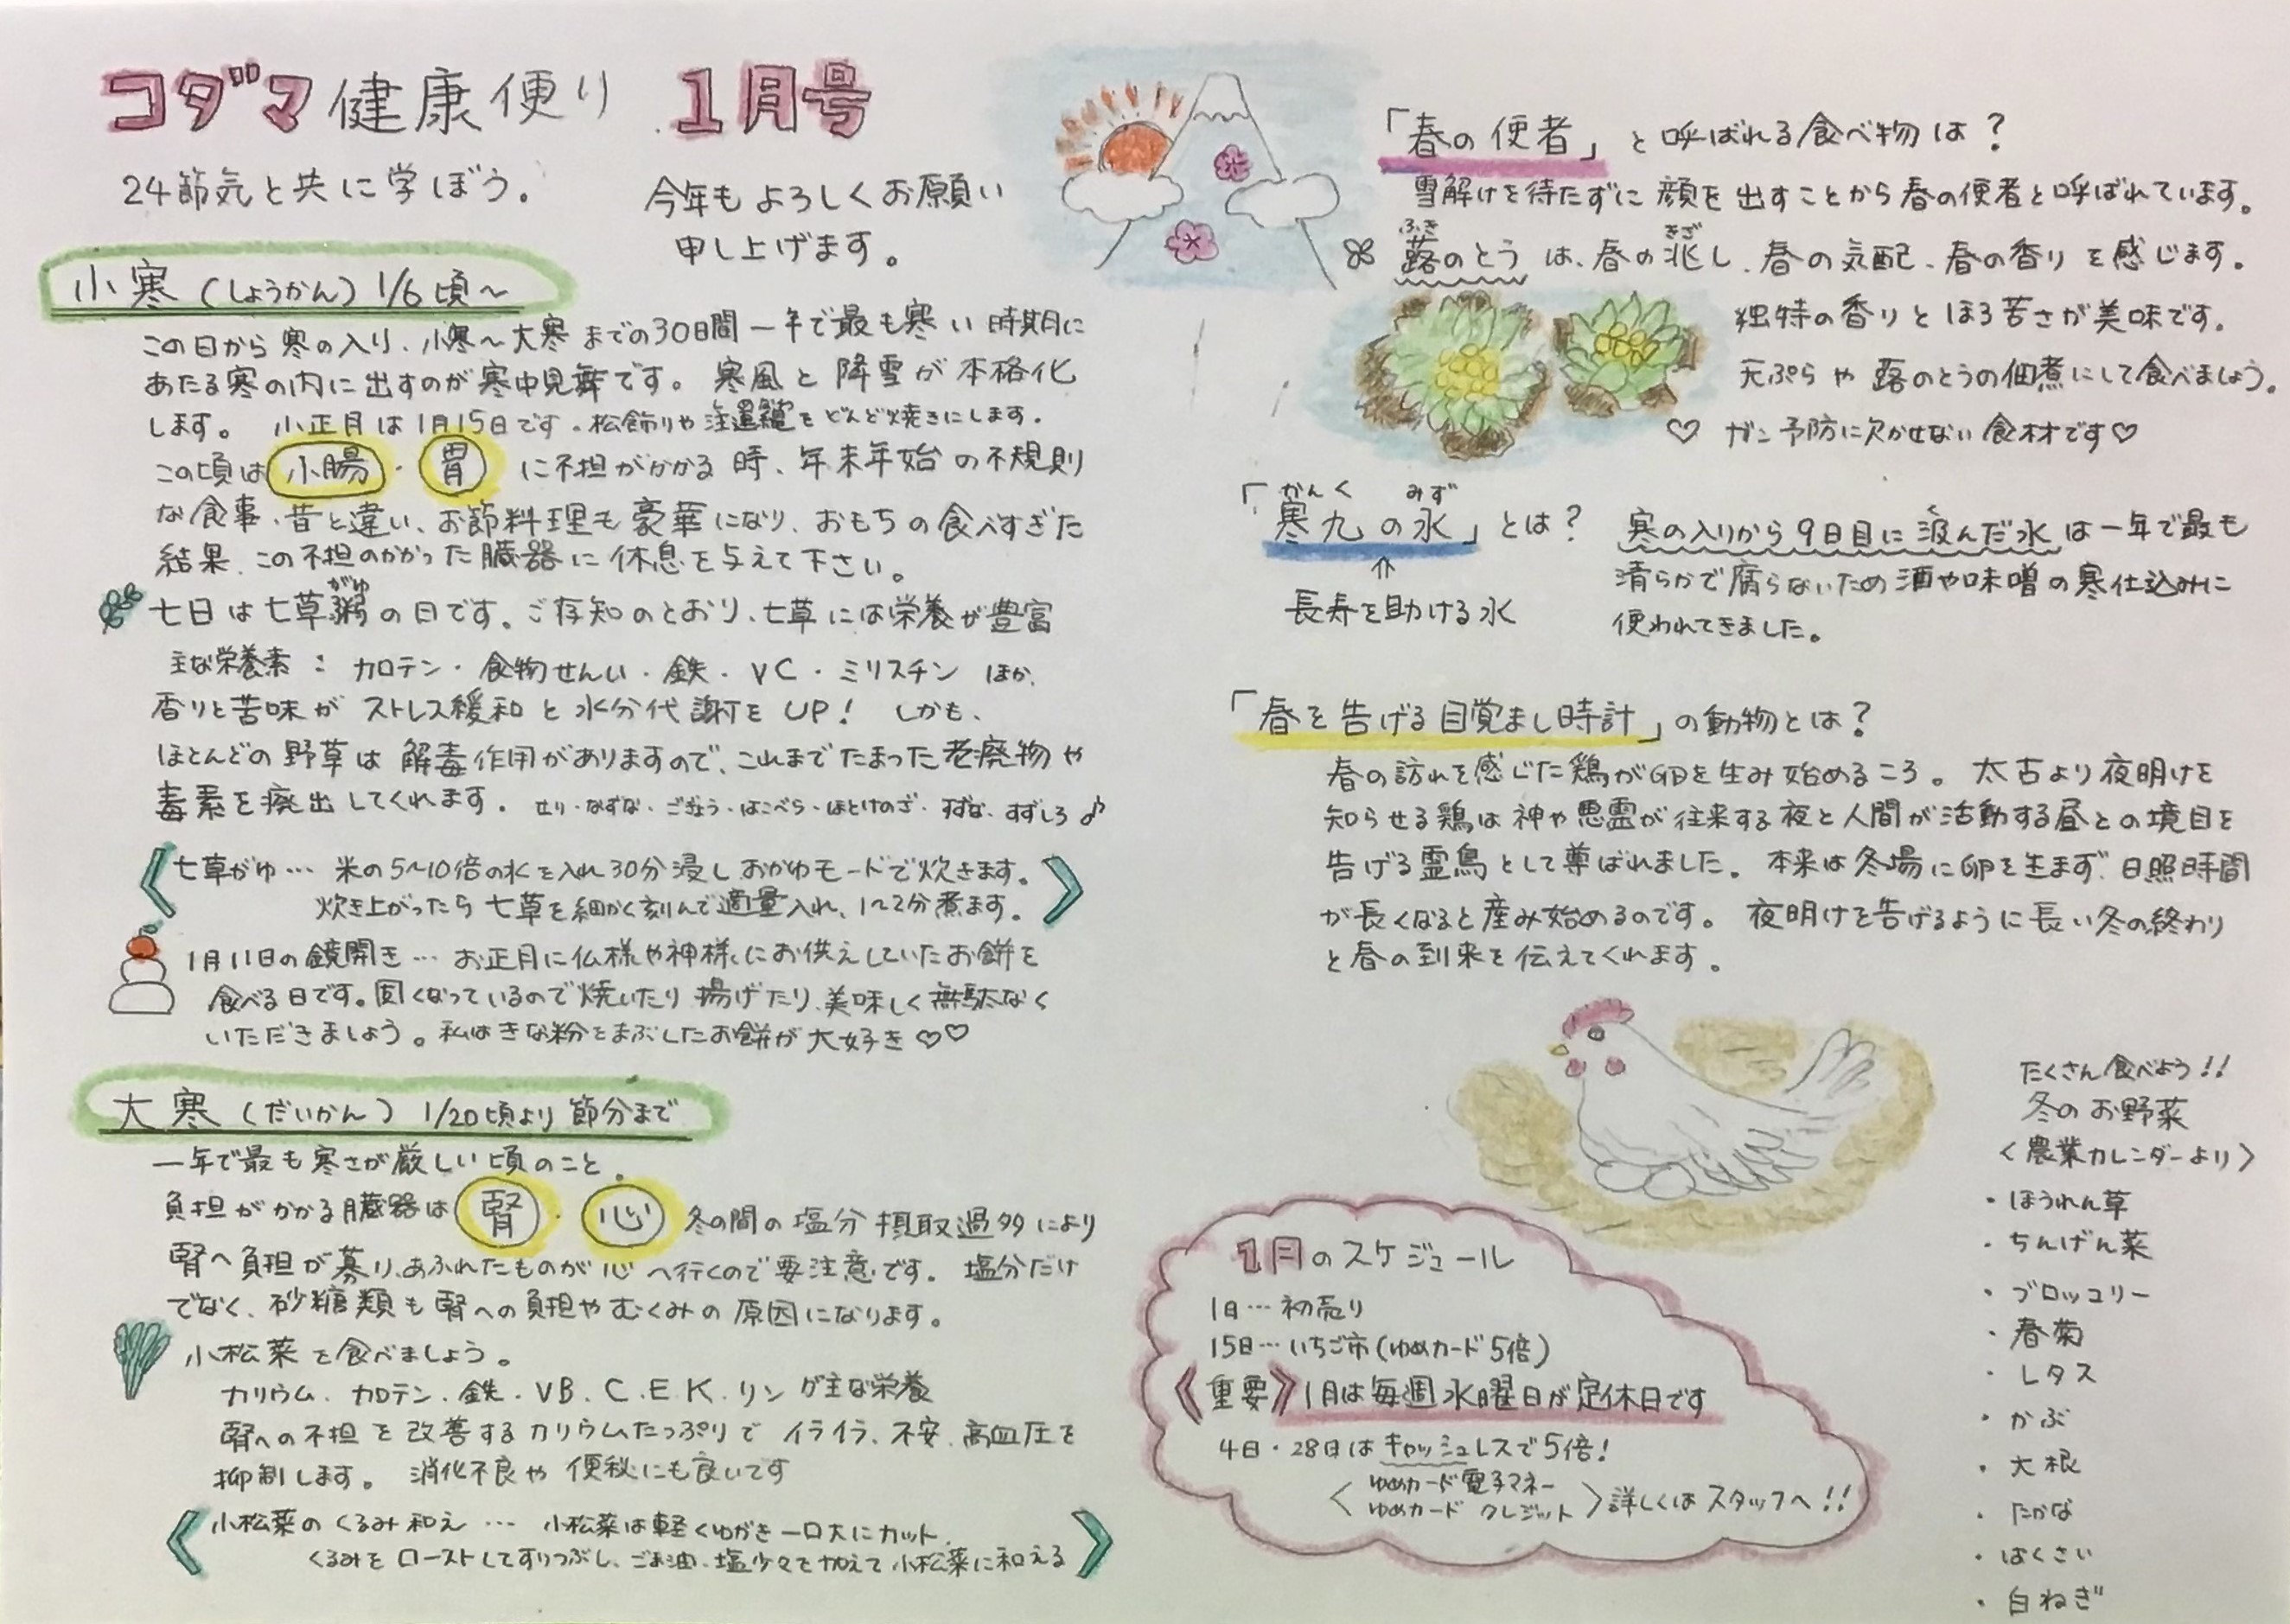 コダマ健康便り 1月号
24節気と共に学ぼう。
今年もよろしくお願い
申し上げます。
小寒（しょうかん）1/6頃〜
この日から寒の入り、小寒〜大寒までの30日間一年で最も寒い時期に
あたる寒の内に出すのが寒中見舞です。寒風と降雪が本格化
します。小正月は1月15日です。松飾りや注連縄をどんど焼きにします。
この頃は小腸・胃に不担がかかる時、年末年始の不規則
な食事、昔と違い、お節料理も豪華になり、おもちの食べすぎた
結果、この不担のかかった臓器に休息を与えて下さい。
七日は七草粥の日です。ご存知のとおり、七草には栄養が豊富
がゆ
主な栄養素：カロテン・食物せんい・鉄・VC・ミリスチン ほか、
香りと苦味がストレス緩和と水分代謝をUP！しかも、
ほとんどの野草は解毒作用がありますので、これまでたまった老廃物や
毒素を廃出してくれます。せり・なずな・ごぎょう・はこべら・ほとけのざ・すずな、すずしろ♪
《七草がゆ… 米の5〜10倍の水を入れ30分浸しおかゆモードで炊きます。
炊き上がったら七草を細かく刻んで適量入れ、1〜2分煮ます。》
1月11日の鏡開き… お正月に仏様や神様にお供えしていたお餅を
食べる日です。固くなっているので焼いたり揚げたり、美味しく無駄なく
いただきましょう。私はきな粉をまぶしたお餅が大好き♡♡
大寒（だいかん）1/20頃より節分まで
一年で最も寒さが厳しい頃のこと。
負担がかかる臓器は腎・心 冬の間の塩分摂取過多により
腎へ負担が募り、あふれたものが心へ行くので要注意です。塩分だけ
でなく、砂糖類も腎への負担やむくみの原因になります。
小松菜を食べましょう。
カリウム、カロテン、鉄・VB、C、E、K、リンが主な栄養
腎への不担を改善するカリウムたっぷりでイライラ、不安、高血圧を
抑制します。消化不良や便秘にも良いです
《小松菜のくるみ和え… 小松菜は軽くゆがき一口大にカット、
くるみをローストしてすりつぶし、ごま油、塩少々を加えて小松菜に和える》
「春の使者」と呼ばれる食べ物は？
雪解けを待たずに顔を出すことから春の使者と呼ばれています。
ふき きざ
蕗のとうは、春の兆し、春の気配、春の香りを感じます。
独特の香りとほろ苦さが美味です。
天ぷらや蕗のとうの佃煮にして食べましょう。
♡ガン予防に欠かせない食材です♡
かんく みず
「寒九の水」とは？
⇑
長寿を助ける水
く
寒の入りから9日目に汲んだ水は一年で最も
清らかで腐らないため酒や味噌の寒仕込みに
使われてきました。
「春を告げる目覚まし時計」の動物とは？
春の訪れを感じた鶏が卵を生み始めるころ。太古より夜明けを
知らせる鶏は神や悪霊が往来する夜と人間が活動する昼との境目を
告げる霊鳥として尊ばれました。本来は冬場に卵を生まず、日照時間
が長くなると産み始めるのです。夜明けを告げるように長い冬の終わり
と春の到来を伝えてくれます。
1月のスケジュール
1日…初売り
15日…いちご市（ゆめカード5倍）
《重要》1月は毎週水曜日が定休日です
4日・28日はキャッシュレスで5倍！
〈ゆめカード電子マネー
ゆめカード クレジット〉詳しくはスタッフへ!!
たくさん食べよう!!
冬のお野菜
〈農業カレンダーより〉
・ほうれん草
・ちんげん菜
・ブロッコリー
・春菊
・レタス
・かぶ
・大根
・たかな
・はくさい
・白ねぎ